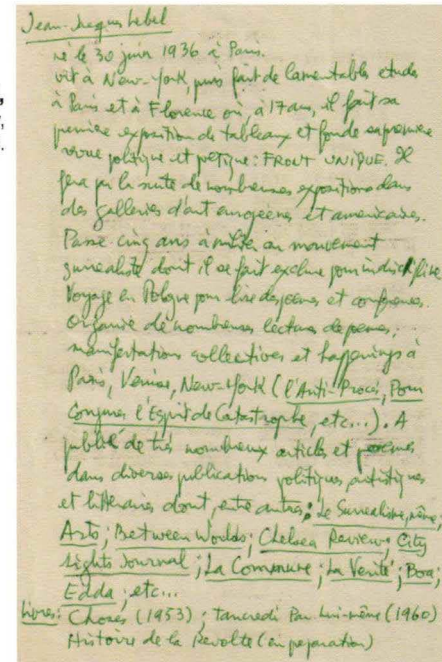 Jean-Jacques Lebel
né le 30 juin 1936 à Paris.
vit à New-York, puis fait de lamentables etudes
à Paris et à Florence où, à 17 ans, il fait sa
premiere exposition de tableaux et fonde sa premiere
revue politique et poetique: FRONT UNIQUE. Il
fera par la suite de nombreuses expositions dans
des galleries d'art europeenes et americaines.
Passe cinq ans à militer au mouvement
surrealiste dont il se fait exclure pour indiscipline
Voyage en Pologne pour lire des poemes et conferences.
Organise de nombreuses lectures de poemes,
manifestations collectives et happenings à
Paris, Venise, New-York (l'Anti-Procès, Pour
Conjurer l'Esprit de Catastrophe, etc...). A
publié de très nombreux articles et poemes
dans diverses publication politiques, artistiques
et litteraires dont, entre autres: Le Surrealisme, même;
Arts; Between Worlds; Chelsea Review; City
Lights Journal; La Commune; La Verité; Boa;
Edda; etc...
Livres: Choses (1953); Tancredi Par Lui-même (1960)
Histoire de la Revolte (en preparation)